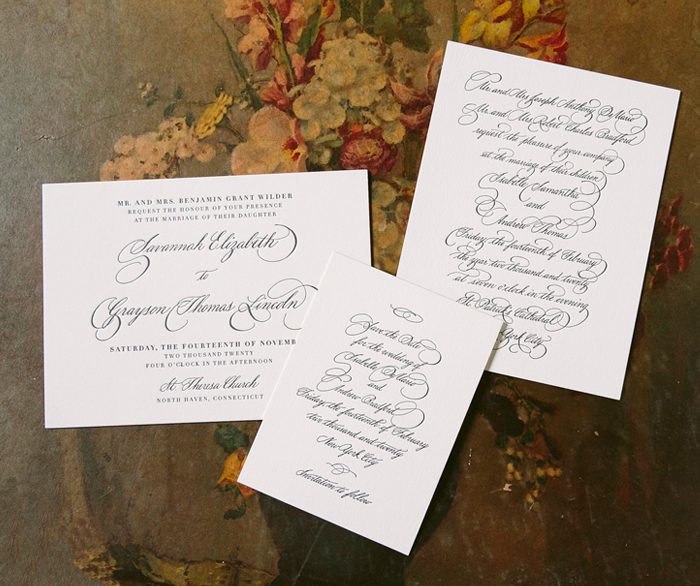 MR. AND MRS. BENJAMIN GRANT WILDER
REQUEST THE HONOUR OF YOUR PRESENCE
AT THE MARRIAGE OF THEIR DAUGHTER
Savannah Elizabeth
to
Grayson Thomas Lincoln
SATURDAY, THE FOURTEENTH OF NOVEMBER
TWO THOUSAND TWENTY
FOUR O'CLOCK IN THE AFTERNOON
St. Theresa Church
NORTH HAVEN, CONNECTICUT
Save the Date
for the wedding of
Isabelle DeMarie
and
Andrew Bradford
Friday, the fourteenth of February
two thousand and twenty
New York City
Invitation to follow
Mr. and Mrs. Joseph Anthony DeMarie
Mr. and Mrs. Robert Charles Bradford
request the pleasure of your company
at the marriage of their children
Isabelle Samantha
and
Andrew Thomas
Friday, the fourteenth of February
the year two thousand and twenty
at seven o'clock in the evening
St. Patrick Cathedral
New York City